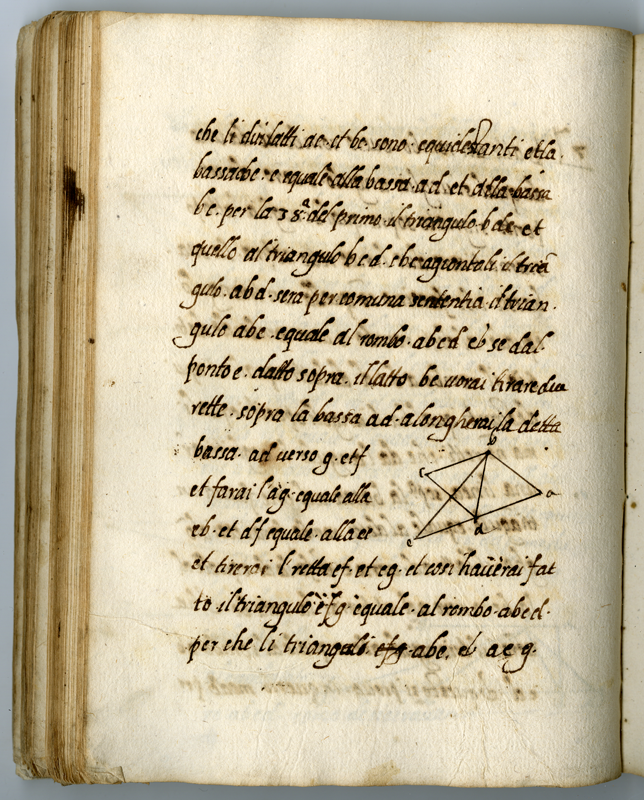 che li dui latti ac. et be. sono. equidestanti et la.
bassa de. e equale alla bassa. ad. et della bassa
be. per la 38ª. del primo. il triangulo. bde et
quello al triangulo bcd. che agiontoli. il triā
gulo. abd. sera per comuna sententia. il trian.
gulo abe. equale al rombo. abcd et se dal.
ponto e. datto sopra. il latto. be. uorai tirare due
rette. sopra la bassa ad. alongherai la detta
bassa. ad uerso g. et f
et farai l'ag. equale alla
eb. et df equale. alla ee
et tirerai l'retta ef. et eg. et cosi hauerai fat
to il triangulo efg equale. al rombo. abcd.
per che li trianguli. efg. abe. et aeg.
b
c
a
d
e